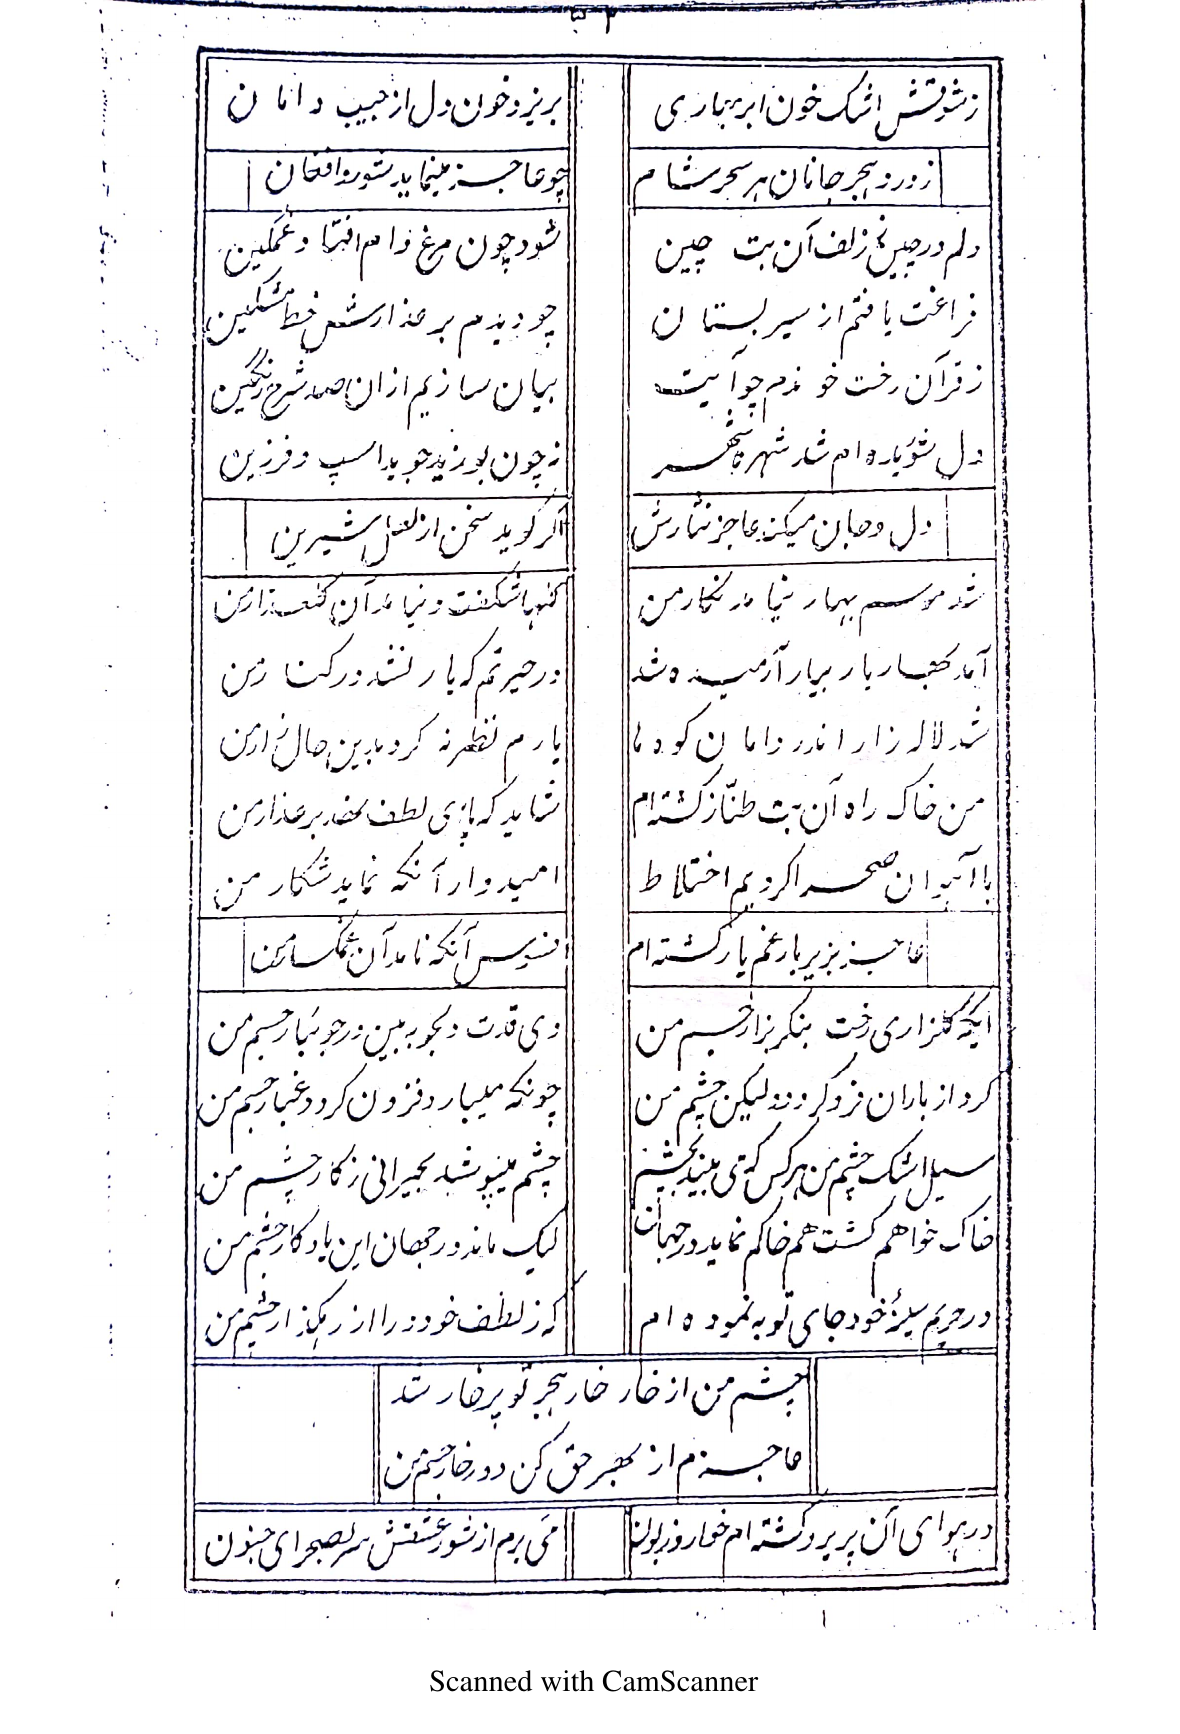 ز شوقش اشک خون ابر بهاری
بریزد خون دل از جیب و امان
ز درد هجر جانان هر سحر شام
چو عاجز مینماید شور و افغان
دلم در چین زلف آن بت چین
شود چون مرغ دام افتاد و غمگین
فراغت یافتم از سیر بستان
چو دیدم بر عذارش خط مشکین
ز قرآن رخت خواندم چو آیت
بیان سازیم ازان صد شرح رنگین
دل شده ام شد شهره شهر
نه چون بو زید جوید اسپ و فرزین
دل و جان میکند عاجز نثارش
اگر گوید سخن از لعل شیرین
شد موسم بهار نیامد نگار من
گلها شگفت و نیامد آن گلعذار من
آمد بهار یار بیار آرمیده شد
در حیرتم که یار نشد در کنار من
شد لاله زار اندر دامان کوه ها
یارم نظر نه کرد بدین حال زار من
من خاک راه آن بت طناز گشته ام
شاید که پای لطف نهد بر عذار من
با آهوان صحرا کردیم اختلاط
امیدوار آنکه نماید شکار من
عاجز بزیر بار غم یار گشته ام
افسوس آنکه نامد آن غمگسار من
ایکه گلزاری رخت بنگر بزار چشم من
وی قدت دلجو به بین در جویبار چشم من
گرد از باران فرو گردد لیکن چشم من
چونکه میبارد فزون گردد غبار چشم من
سیل اشک چشم من هر کس که می بیند بچشم
چشم میپوشد بحیرانی ز کار چشم من
خاک خواهم گشت هم خاکم نماید در جهان
لیک ماند در جهان این یادگار چشم من
در حریم سینهٔ خود جای تو بنموده ام
که ز لطف خود درا از رهگذار چشم من
چشم من از خار خار هجر تو پر خار شد
عاجزم از بهر حق کن دور خار چشم من
در هوای آن پریرو گشته ام خوار و زبون
می برم از شور عشقش سر بصحرای جنون
Scanned with CamScanner